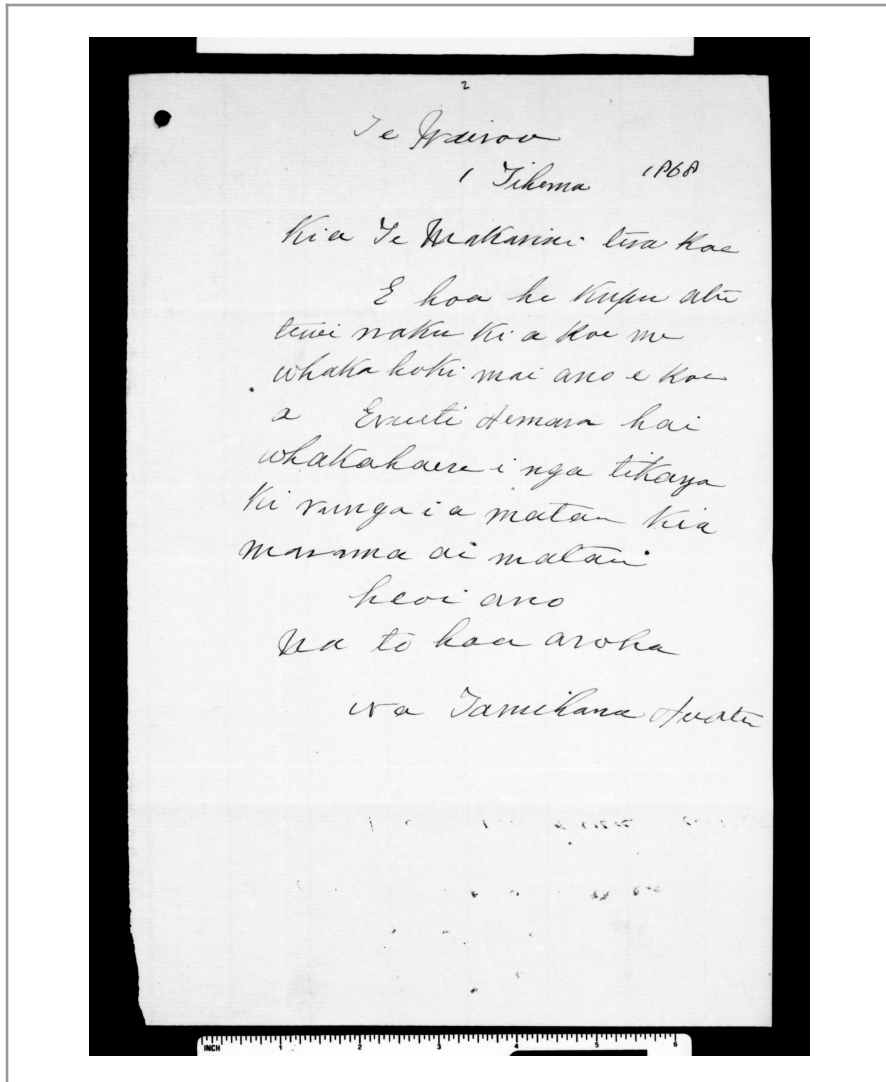 2
Te Wairoa
1 Tihema 1868
Kia Te Makarini tena koe
E hoa he kupu atu
tenei naku ki a koe me
whaka hoki mai ano e koe
a Erueti Hemara hai
whakahaere i nga tikaga
ki runga i a matau kia
marama ai matau
heoi ano
Na to hoa aroha
na Tamihana Huata
INCH 1 2 3 4 5 6